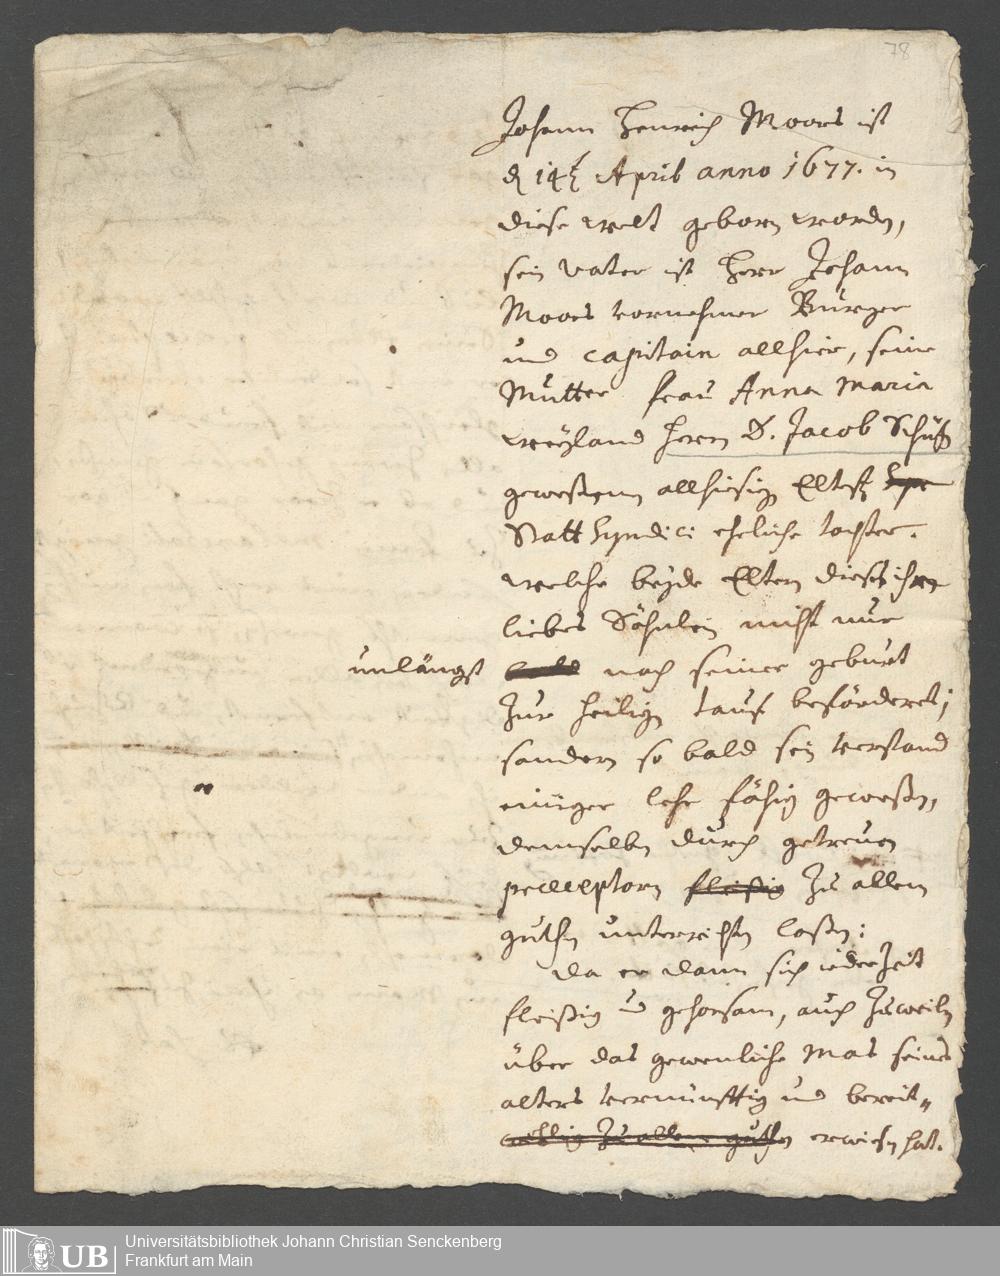 78
Johann Henrich Moors ist
d 14t April anno 1677. in
diese welt geborn worden,
sein vater ist Herr Johann
Moors vornehmer Bürger
und capitain allhier, seine
Mutter frau Anna Maria
weyland Herrn D. Jacob Schütz
geweßenen allhiesigen Eltesten
Statt Syndici eheliche tochter.
welche beyde Eltern dieses ihr
liebes Söhnlein nicht nur
unlängst bald nach seiner geburt
Zur heiligen tauf beförderet;
sondern so bald sein verstand
einiger lehr fähig geweßen,
demselben durch getreuen
preceptorn fleißig Zu allem
guthen unterrichten laßen:
da er dann sich ieder Zeit
fleißig und gehorsam, auch Zuweiln
über das gewenliche Mas seines
alters vernünfftig und bereit„
willig Zu allem guthen erwiesen hat.
UB
Universitätsbibliothek Johann Christian Senckenberg
Frankfurt am Main